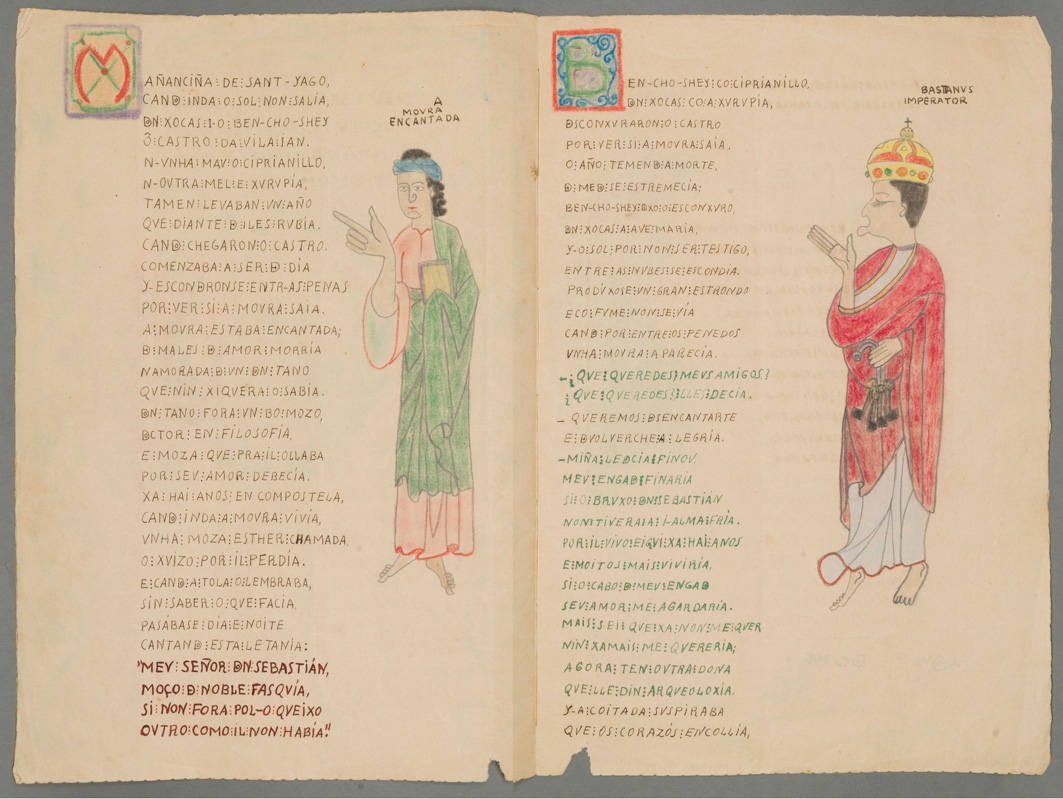 MAÑANCIÑA⁝DE⁝SANT-YAGO,
CAND⁝INDA⁝O⁝SOL⁝NON⁝SALÍA,
DN⁝XOCAS⁝I-O⁝BEN-CHO-SHEY
Ô⁝CASTRO⁝DA⁝VILA⁝IAN.
N-VNHA⁝MAV⁝O⁝CIPRIANILLO,
N-OVTRA⁝MEL⁝E⁝XVRVPIA,
TAMEN⁝LEVABAN⁝VN⁝AÑO
QVE⁝DIANTE⁝D⁝ILES⁝RVBIA.
CAND⁝CHEGARON⁝O⁝CASTRO.
COMENZABA⁝A⁝SER⁝D⁝DÍA
Y-ESCONDRONSE⁝ENTR-AS⁝PENAS
POR⁝VER⁝SI⁝A⁝MOVRA⁝SAIA.
A⁝MOVRA⁝ESTABA⁝ENCANTADA;
D⁝MALES⁝D⁝AMOR⁝MORRIA
NAMORADA⁝D⁝VN⁝DN⁝TANO
QVE⁝NIN⁝XIQVERA⁝O⁝SABIA.
DN⁝TANO⁝FORA⁝VN⁝BO⁝MOZO,
DCTOR⁝EN⁝FILOSOFÍA,
E⁝MOZA⁝QVE⁝PRA⁝IL⁝OLLABA
POR⁝SEV⁝AMOR⁝DEBECÍA.
XA⁝HAI⁝ANOS⁝EN⁝COMPOSTELA,
CAND⁝INDA⁝A⁝MOVRA⁝VIVÍA,
VNHA⁝MOZA⁝ESTHER⁝CHAMADA,
O⁝XVIZO⁝POR⁝IL⁝PERDÍA.
E⁝CAND⁝A⁝TOLA⁝O⁝LEMBRABA,
SIN⁝SABER⁝O⁝QVE⁝FACÍA,
PASÁBASE⁝DIA⁝E⁝NOITE
CANTAND⁝ESTA⁝LETANÍA⁝
"MEV⁝SEÑOR⁝DN⁝SEBASTIÁN,
MOÇO⁝D⁝NOBLE⁝FASQVÍA,
SI⁝NON⁝FORA⁝POL-O⁝QVEIXO
OVTRO⁝COMO⁝IL⁝NON⁝HABÍA."
A
MOVRA
ENCANTADA
BEN-CHO-SHEY⁝CO⁝CIPRIANILLO,
DN⁝XOCAS⁝CO⁝A⁝XVRVPIA,
DSCONXVRARON⁝O⁝CASTRO
POR⁝VER⁝SI⁝A⁝MOVRA⁝SAIA,
O⁝AÑO⁝TEMEND⁝A⁝MORTE,
D⁝MED⁝SE⁝ESTREMECÍA;
BEN-CHO-SHEY⁝DXO⁝O⁝ESCONXVRO,
DN⁝XOCAS⁝A⁝AVE⁝MARÍA,
Y-O⁝SOL⁝POR⁝NON⁝SER⁝TESTIGO,
ENTRE⁝AS⁝NVBES⁝SE⁝ESCONDIA.
PRODVXOSE⁝VN⁝GRAN⁝ESTRONDO
E⁝CO⁝FVME⁝NON⁝SE⁝VÍA
CAND⁝POR⁝ENTRE⁝OS⁝PENEDOS
VNHA⁝MOVRA⁝APARECÍA.
-¿QVE⁝QVEREDES⁝MEVS⁝AMIGOS?
¿QVE⁝QVEREDES?⁝LLES⁝DECÍA.
- QVEREMOS⁝DSENCANTARTE
E⁝DVOLVERCHE⁝A⁝LEGRIA.
-MIÑA⁝LEDCIA⁝FINOV.
MEV⁝ENGAD⁝FINARÍA
SI⁝O⁝BRVXO⁝DN⁝SEBASTIÁN
NON⁝TIVERA⁝IA⁝I-ALMA⁝FRÍA.
POR⁝IL⁝VIVO⁝EIQVI⁝XA⁝HAI⁝ANOS
E⁝MOITOS⁝MAIS⁝VIVIRÍA,
SI⁝O⁝CABO⁝D⁝MEV⁝ENGAD
SEV⁝AMOR⁝ME⁝AGARDARÍA.
MAIS⁝SEI⁝QVE⁝XA⁝NON⁝ME⁝QVER
NIN⁝XAMAIS⁝ME⁝QVERERÍA;
AGORA⁝TEN⁝OVTRA⁝DONA
QVE⁝LLE⁝DIN⁝ARQVEOLOXÍA.
Y-A⁝COITADA⁝SVSPIRABA
QVE⁝OS⁝CORAZÓS⁝ENCOLLÍA,
BASTANVS
IMPERATOR